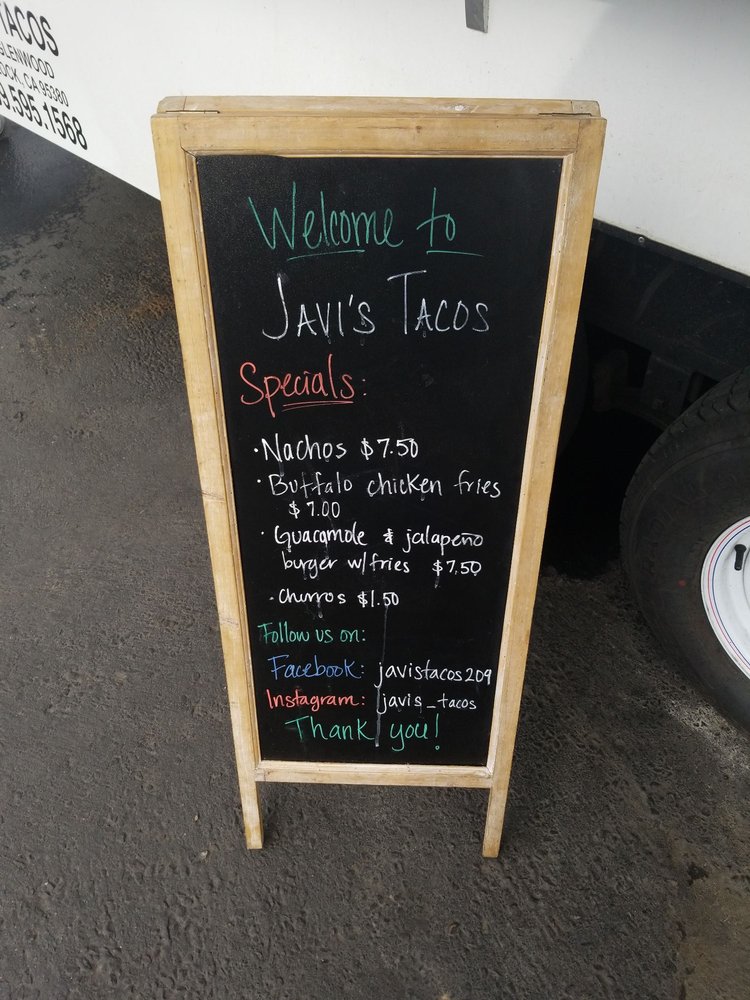 TACOS
GLENWOOD
OCK, CA 95380
9.595.1568
Welcome to
JAVI'S TACOS
Specials:
· Nachos $7.50
· Buffalo chicken fries
$7.00
· Guacamole & jalapeño
burger w/fries $7.50
· Churros $1.50
Follow us on:
Facebook: javistacos209
Instagram: javis_tacos
Thank you!